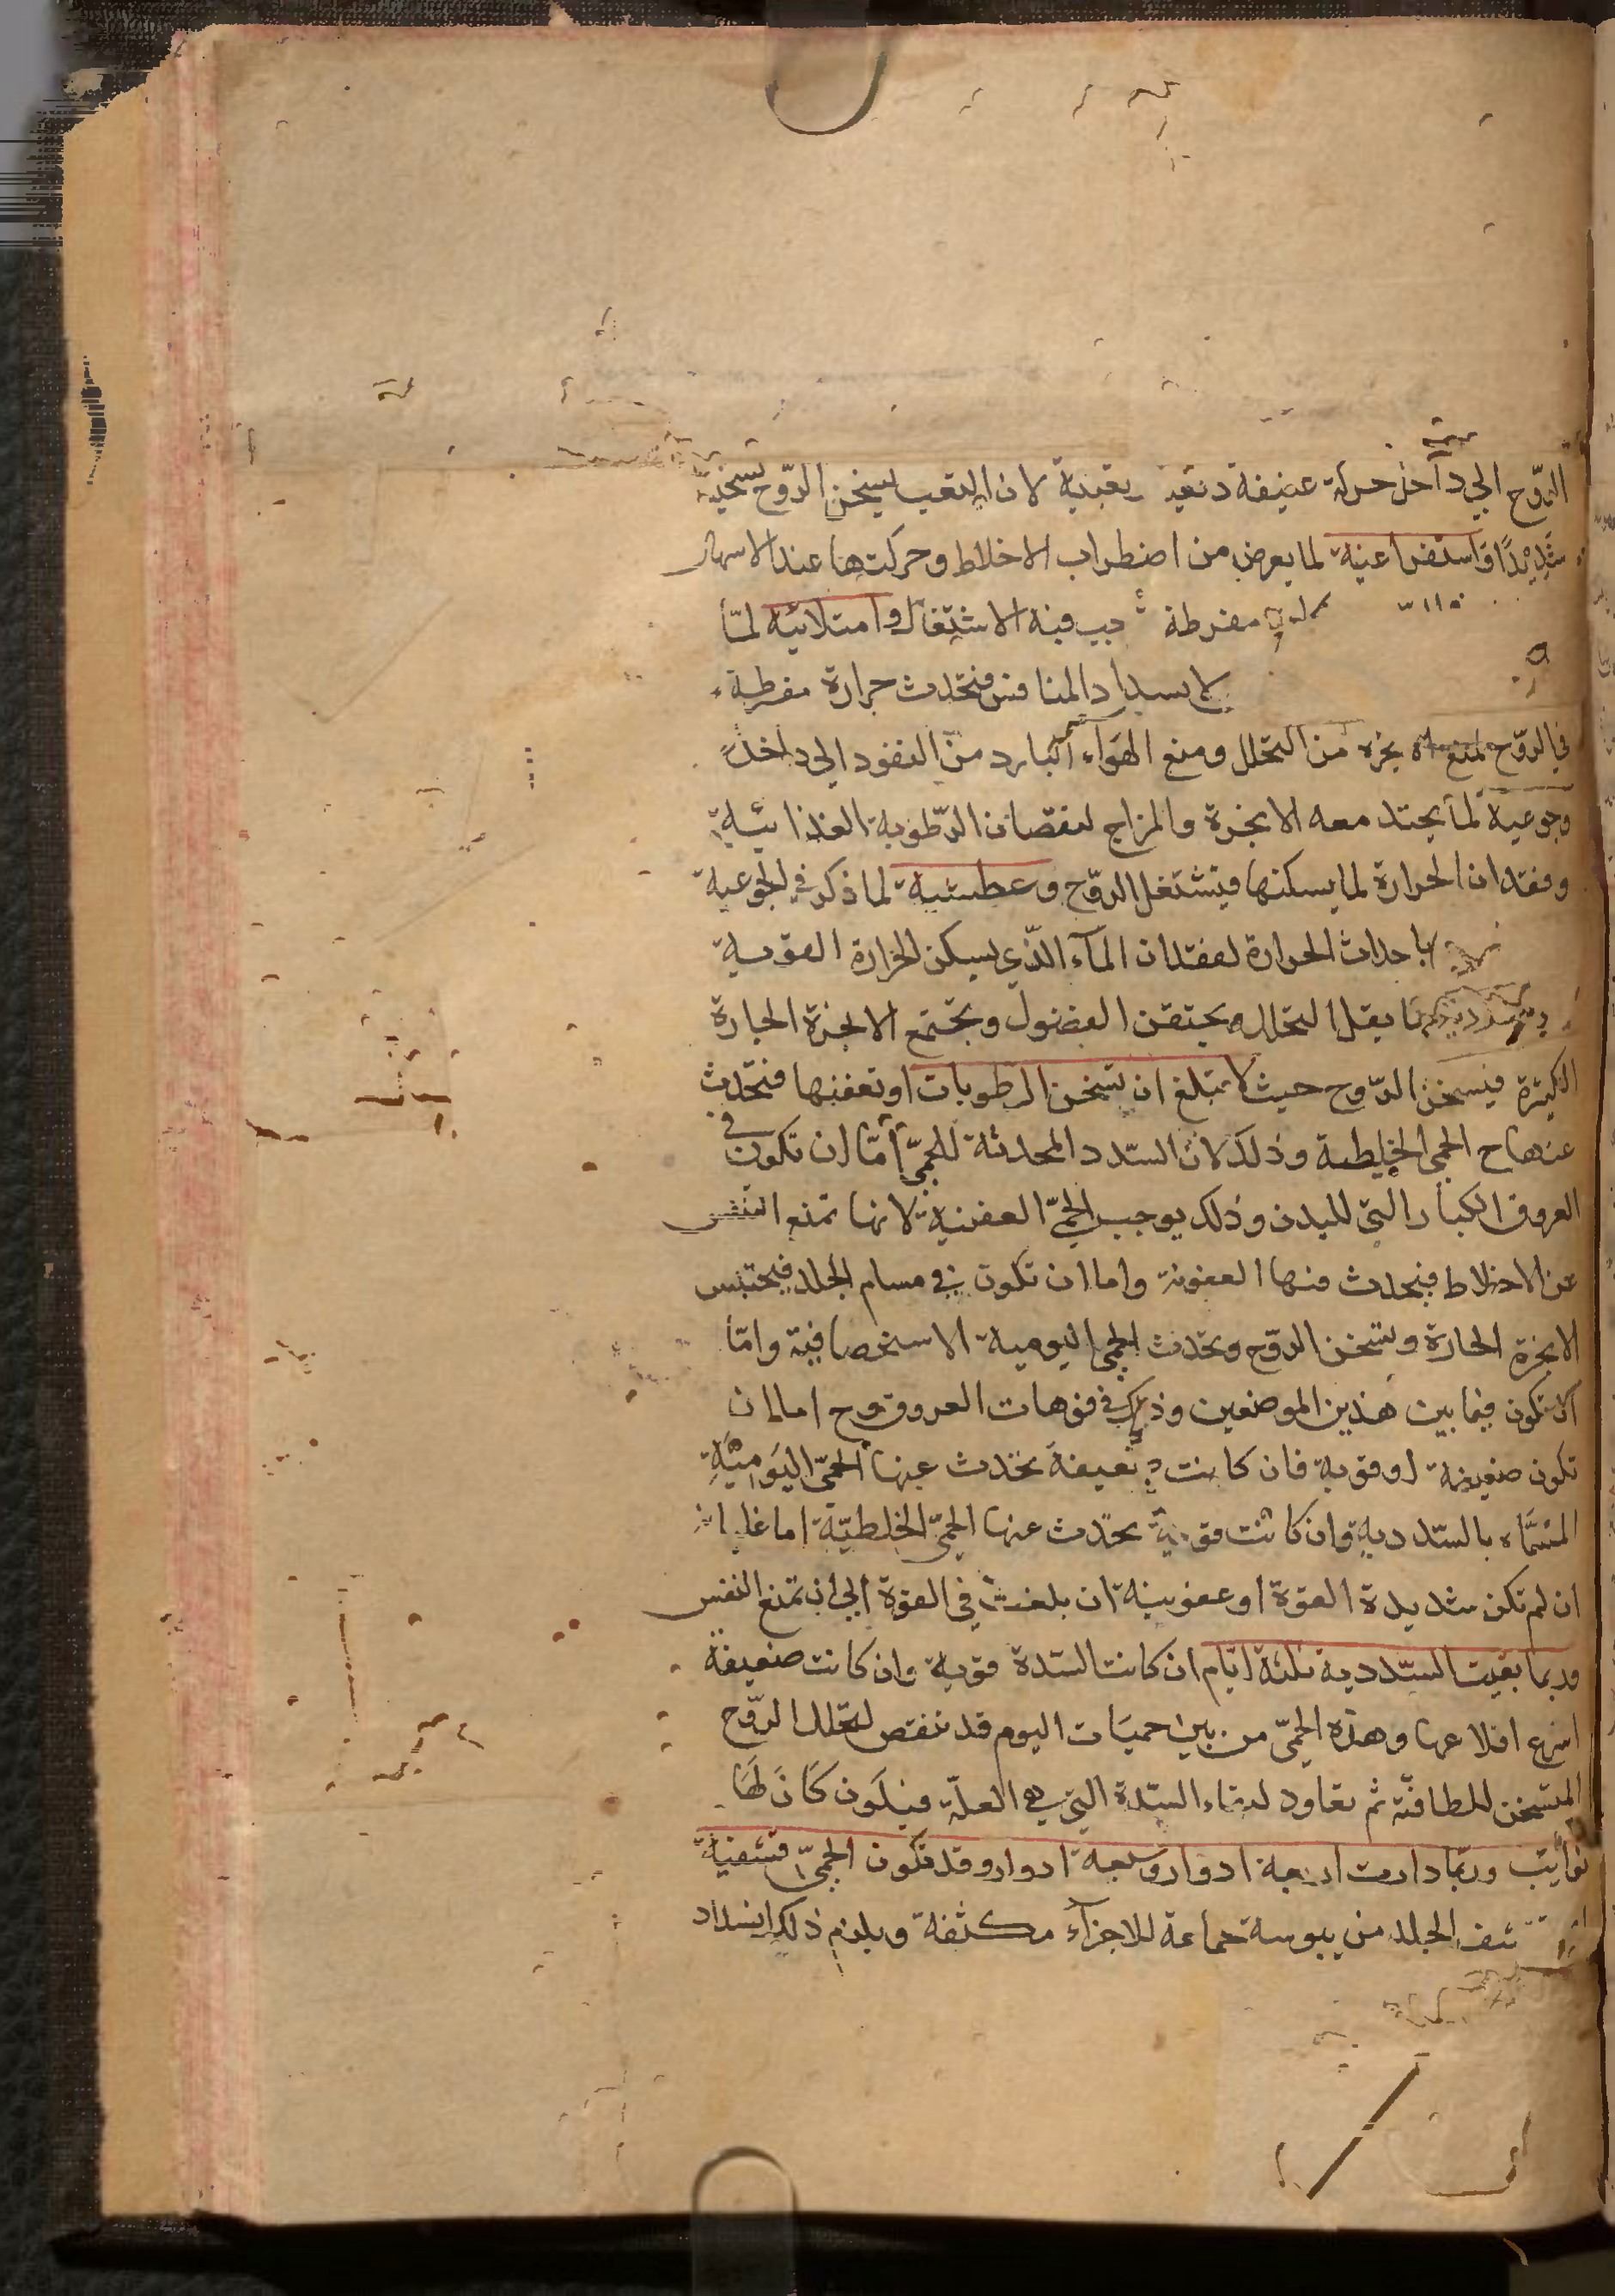 الروح الى داخل حركة عنيفة وتعبية لان التعب يسخن الروح تسخينا
شديدًا واستفراغية لما يعرض من اضطراب الاخلاط وحركتها عند الاسهال
مفرطة الاشتغال وامتلائية لما
لانسداد المنافس فتحدث حرارة مفرطة
في الروح لمنع من التحلل ومنع الهوآء البارد من النفود الى داخل
وجوعية لما يحتد معه الابخرة والمزاج لنقصان الرطوبة الغذائية
وفقدان الحرارة لما يسكنها فتشتغل الروح وعطشية لما ذكر في الجوعية
باحداث الحرارة لفقدان المآء الذي يسكن الحرارة القوية
يقل التحلل ويحتقن الفضول ويجتمع الابخرة الحارة
الكثيرة فيسخن الروح حيث لا تبلغ ان تسخن الرطوبات او تعفنها فتحدث
عنها ح الحمى الخلطية وذلك لان السدد المحدثة للحمى اما ان تكون في
العروق الكبار التى للبدن وذلك يوجب الحمى العفنية لانها تمنع التنفس
عن الاخلاط فيحدث فيها العفونة واما ان تكون في مسام الجلد فيحتبس
الابخرة الحارة وتسخن الروح وتحدث الحمى اليومية الاستحصافية واما
ان تكون فيما بين هذين الموضعين وذلك في فوهات العروق وح اما ان
تكون ضعيفة او قوية فان كانت ضعيفة تحدث عنها الحمى اليومية
المسماه بالسددية وان كانت قوية يحدث عنها الحمى الخلطية اما غليانية
ان لم تكن شديدة القوة او عفونية ان بلغت في القوة الى ان تمنع النفس
وربما بقيت السددية ثلثة ايام ان كانت السدة قوية وان كانت ضعيفة
اسرع اقلاعها وهذه الحمى من بين حميات اليوم قد تنقص لتحلل الروح
المتسخن للطافته ثم تعاود لبقاء السدة التى هي العلة فيكون كَانَ لَهَا
نوايب وربما دارت اربعة ادوار وسبعة ادوار وقد تكون الحمى قشفية
الجلد من يبوسة جماعة للاجزآء مكثفة ويلزم ذلك انسداد